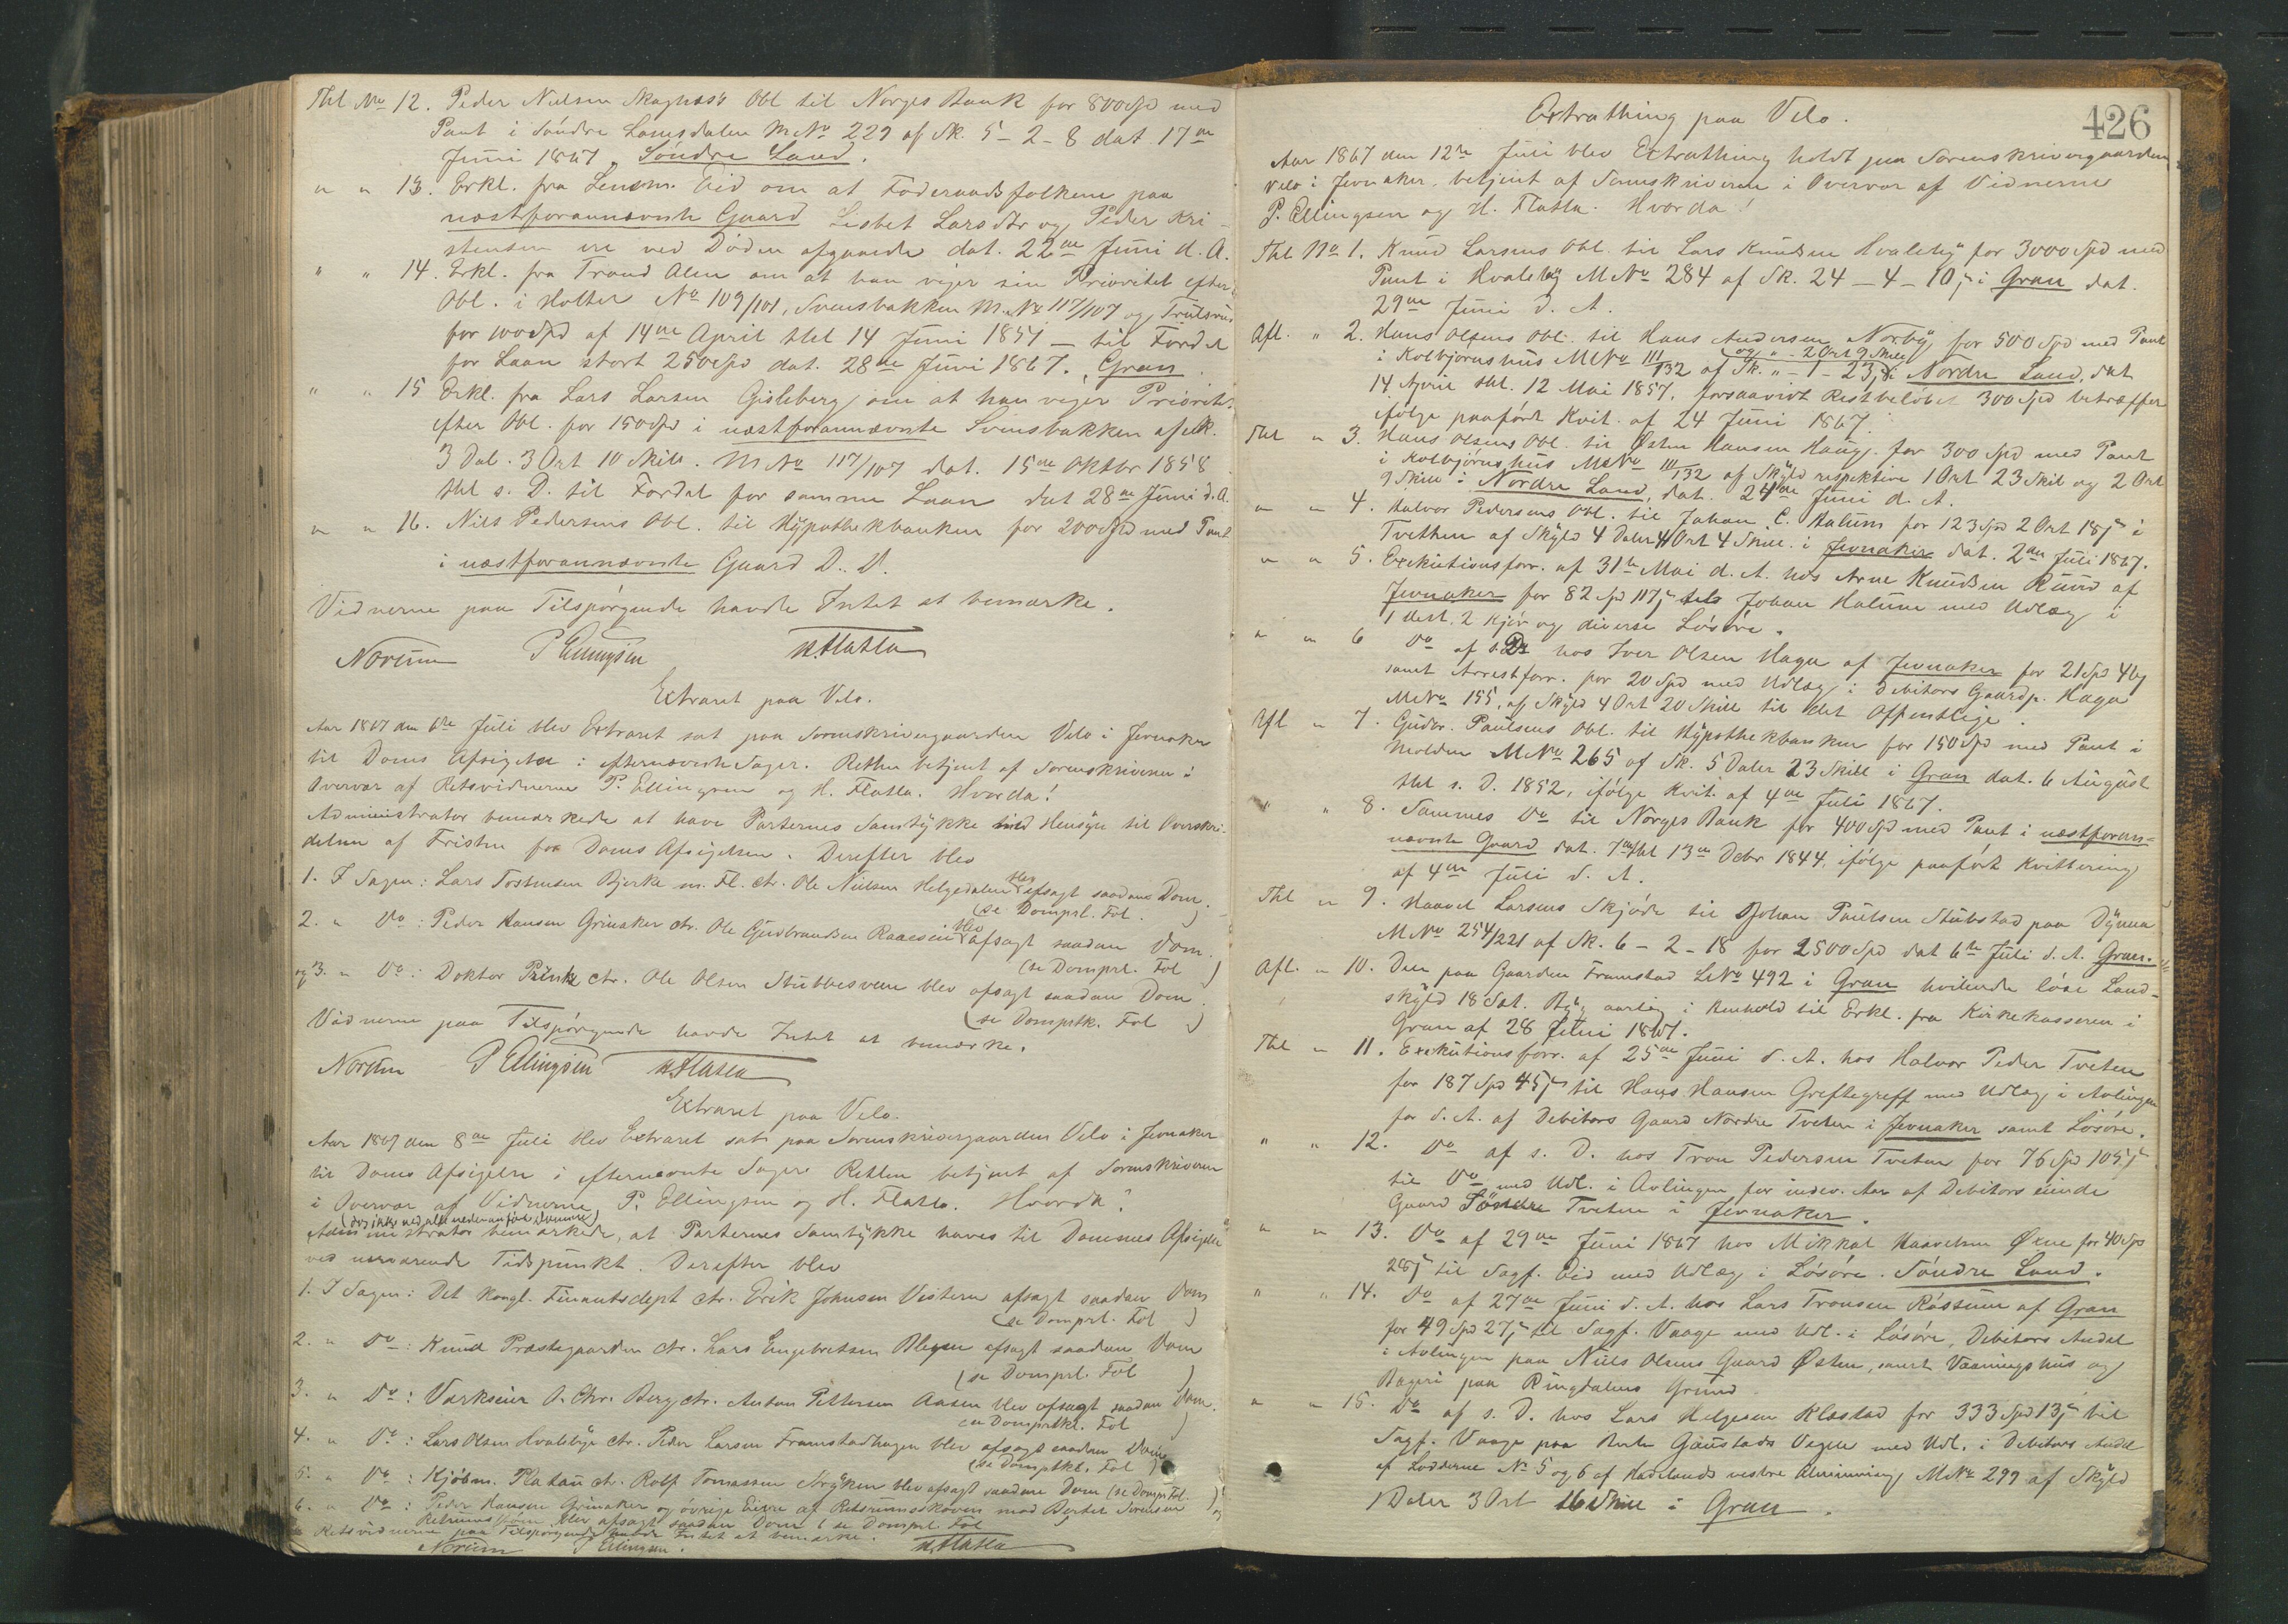 Thl No 12. Peder Nielsen Skagnæs's Obl til Norges Bank for 800 Spd med
Pant i Søndre Lomsdalen M No 229 af Sk. 5-2-8 dat 17de
Juni 1867. Søndre Land.
" " 13. Erkl. fra Lensm. Eid om at Föderaadsfolkene paa
næstforannævnte Gaard Lisbet Larsdtr og Peder Kri-
stensen ere ved Døden afgaaede dat. 22de Juni d. A.
" " 14. Erkl. fra Trond Alm om at han viger sin Prioritet efter
Obl. i Holter No 109/101, Svensbakken M. No 117/107 og
for 100 Spd af 14de April thl 14 Juni 1851 — til Fordel
for Laan stort 250 Spd dat. 28de Juni 1867. Gran.
" " 15 Erkl. fra Lars Larsen Gisleberg om at han viger Priorit.
efter Obl. for 150 Spd i næstforannævnte Svensbakken af Sk.
3 Dal. 3 Ort 10 Skill. M No 117/107 dat. 15de Oktbr 1858
thl s. D. til Fordel for samme Laan dat 28de Juni d. A.
" " 16. Nils Pedersens Obl. til Hypothekbanken for 200 Spd med Pant
i næstforannævnte Gaard D. D.
Vidnerne paa Tilspørgende havde Intet at bemærke.
Norum P Ellingsen H. Flatla
Extraret paa Velo.
Aar 1867 den 6te Juli blev Extraret sat paa Sorenskrivergaarden Velo i Jevnaker
til Doms Afsigelse i efternævnte Sager. Retten betjent af Sorenskriveren i
Overvær af Retsvidnerne P. Ellingsen og H. Flatla. Hvorda!
Administrator bemærkede at have Parternes Samtykke med Hensyn til Overskri-
delsen af Fristen for Doms Afsigelsen. Derefter blev
1. I Sagen: Lars Tostensen Bjerke m. Fl. ctr. Ole Nielsen Helgedalen blev afsagt saadan Dom.
(se Domprt. Fol. )
2. " Do: Peder Hansen Grinaker ctr. Ole Gudbrandsen blev afsagt saadan Dom.
(se Domprt. Fol )
og 3. " Do: Doktor Printz ctr. Ole Olsen Stubbesveen blev afsagt saadan Dom.
(se Domprtk. Fol )
Vidnerne paa Tilspørgende havde Intet at bemærke.
Norum P Ellingsen H. Flatla
Extraret paa Velo.
Aar 1867 den 8de Juli blev Extraret sat paa Sorenskrivergaarden Velo i Jevnaker
til Doms Afsigelse i efternævnte Sager. Retten betjent af Sorenskriveren
i Overvær af Vidnerne P. Ellingsen og H. Flatla. Hvorda!
(dog ikke ved alle nedenanførte Domme)
Administrator bemærkede, at Parternes Samtykke haves til Dommes Afsigelse
ved nærværende Tidspunkt. Derefter blev
1. I Sagen: Det kongl. Finantsdept ctr. Erik Johnsen Vestern afsagt saadan Dom
(se Domprt. Fol )
2. " Do: Knud Præstegaarden ctr. Lars Engebretsen Blegen afsagt saadan Dom
(se Domprt. Fol )
3. " Do: Værkseier O. Chr. Berg ctr. Anton Pettersen Aasen blev afsagt saadan Dom.
(se Domprtkl. Fol )
4. " Do: Lars Olsen Hvalebye ctr. Peder Larsen Framstadhagen blev afsagt saadan Dom
(se Domptkl. Fol )
5. " Do: Kjöbm. Platau ctr. Rolf Tomassen Stryken blev afsagt saadan Dom (se Domprt Fol. )
6. " Do: Peder Hansen Grinaker og øvrige Eiere af mod Berter Sørensen
blev afsagt saadan Dom (se Domprt. Fol
Retsvidnerne paa Tilspørgende havde Intet at bemærke.
Norum P Ellingsen. H. Flatla
426
Extrathing paa Velo.
Aar 1867 den 12te Juli blev Extrathing holdt paa Sorenskrivergaarden
Velo i Jevnaker, betjent af Sorenskriveren i Overvær af Vidnerne
P. Ellingsen og H. Flatla. Hvorda!
Thl No 1. Knud Larsens Obl. til Lars Knudsen Hvaleby for 3000 Spd med
Pant i Hvaleby M No 284 af Sk. 24-4-10 ß i Gran dat.
29de Juni d. A.
Afl. " 2. Hans Olsens Obl. til Hans Andersen Norby for 500 Spd med Pant
og " - 2 Ort 9 Skill
i Kolbjørnshus M No 111/132 af Sk. " - 1 - 23 ß i Nordre Land, dat
14 April thl. 12 Mai 1857, forsaavidt Restbeløbet 300 Spd betræffer
ifølge paaført Kvit. af 24 Juni 1867.
Thl " 3. Hans Olsens Obl. til Østen Hansen Haug. for 300 Spd med Pant
i Kolbjørnshus M No 111/132 af Skyld respektive 1 Ort 23 Skil og 2 Ort
9 Skill i Nordre Land, dat. 24de Juni d. A.
" " 4. Halvor Pedersens Obl. til Johan C. Halum for 123 Spd 2 Ort 18 ß i
Tvethen af Skyld 4 Daler 4 Ort 4 Skill. i Jevnaker dat. 2den Juli 1867.
" " 5. Exekutionsforr. af 31te Mai d. A. hos Arne Knudsen Ruud af
Jevnaker for 82 Spd 117 ß til Johan Halum med Udlæg i
1 Hest. 2 Kjør og diverse Løsøre.
" " 6 Do af s. D. hos Iver Olsen Haga af Jevnaker for 21 Spd 4 ß
samt Arrestforr. for 20 Spd med Udlæg i Debitors Gaardp. Haga
M No 155, af Skyld 4 Ort 20 Skill til det Offentlige.
Afl " 7. Gudbr. Paulsens Obl. til Hypothekbanken for 150 Spd med Pant i
Molden M No 265 af Sk. 5 Daler 23 Skill i Gran dat. 6 August
thl s. D. 1852, ifølge Kvit. af 4de Juli 1867.
" " 8. Sammes Do til Norges Bank for 400 Spd med Pant i næstforan-
nævnte Gaard dat. 7de thl 13de Debr 1844, ifølge paaført Kvittering
af 4de Juli d. A.
Thl " 9. Haavel Larsens Skjøde til Johan Paulsen Stubstad paa Dynna
M No 254/221 af Sk. 6-2-18 for 2500 Spd dat 6te Juli d. A. Gran.
Afl. " 10. Den paa Gaarden Framstad L No 492 i Gran hvilende løse Land-
skyld 18 Sæt. Byg aarlig i Henhold til Erkl. fra Kirkekasseren i
Gran af 28 Juni 1867.
Thl " 11. Exekutionsforr. af 25de Juni d. A. hos Halvor Peder Tveten
for 187 Spd 45 ß til Hans Hansen Greftegreff med Udlæg i Avlingen
for d. A. af Debitors Gaard Nordre Tveten i Jevnaker samt Løsøre.
" " 12. Do af s. D. hos Tron Pedersen Tveten for 76 Spd 105 ß
til Do med Udl. i Avlingen for indev. Aar af Debitors eiende
Gaard Søndre Tveten i Jevnaker.
" " 13. Do af 29de Juni 1867 hos Mikkel Haavelsen Øine for 40 Spd
28 ß til Sagf. Eid med Udlæg i Løsøre. Søndre Land.
" " 14. Do af 27de Juni d. A. hos Lars Tronsen Røssum af Gran
for 49 Spd 27 ß til Sagf. Vaage med Udl. i Løsøre, Debitors Andel
i Avlingen paa Niels Olsens Gaard Østen, samt Vaaningshus og
Bageri paa Ringdalens Grund.
" " 15. Do af s. D. hos Lars Helgesen Klæstad for 333 Spd 13 ß til
Sagf. Vaage paa Gaustads Vegne med Udl. i Debitors Andel
af Lodderne No 5 og 6 af Hadelands vestre Alminning M No 299 af Skyld
1 Daler 3 Ort 16 Skill i Gran.